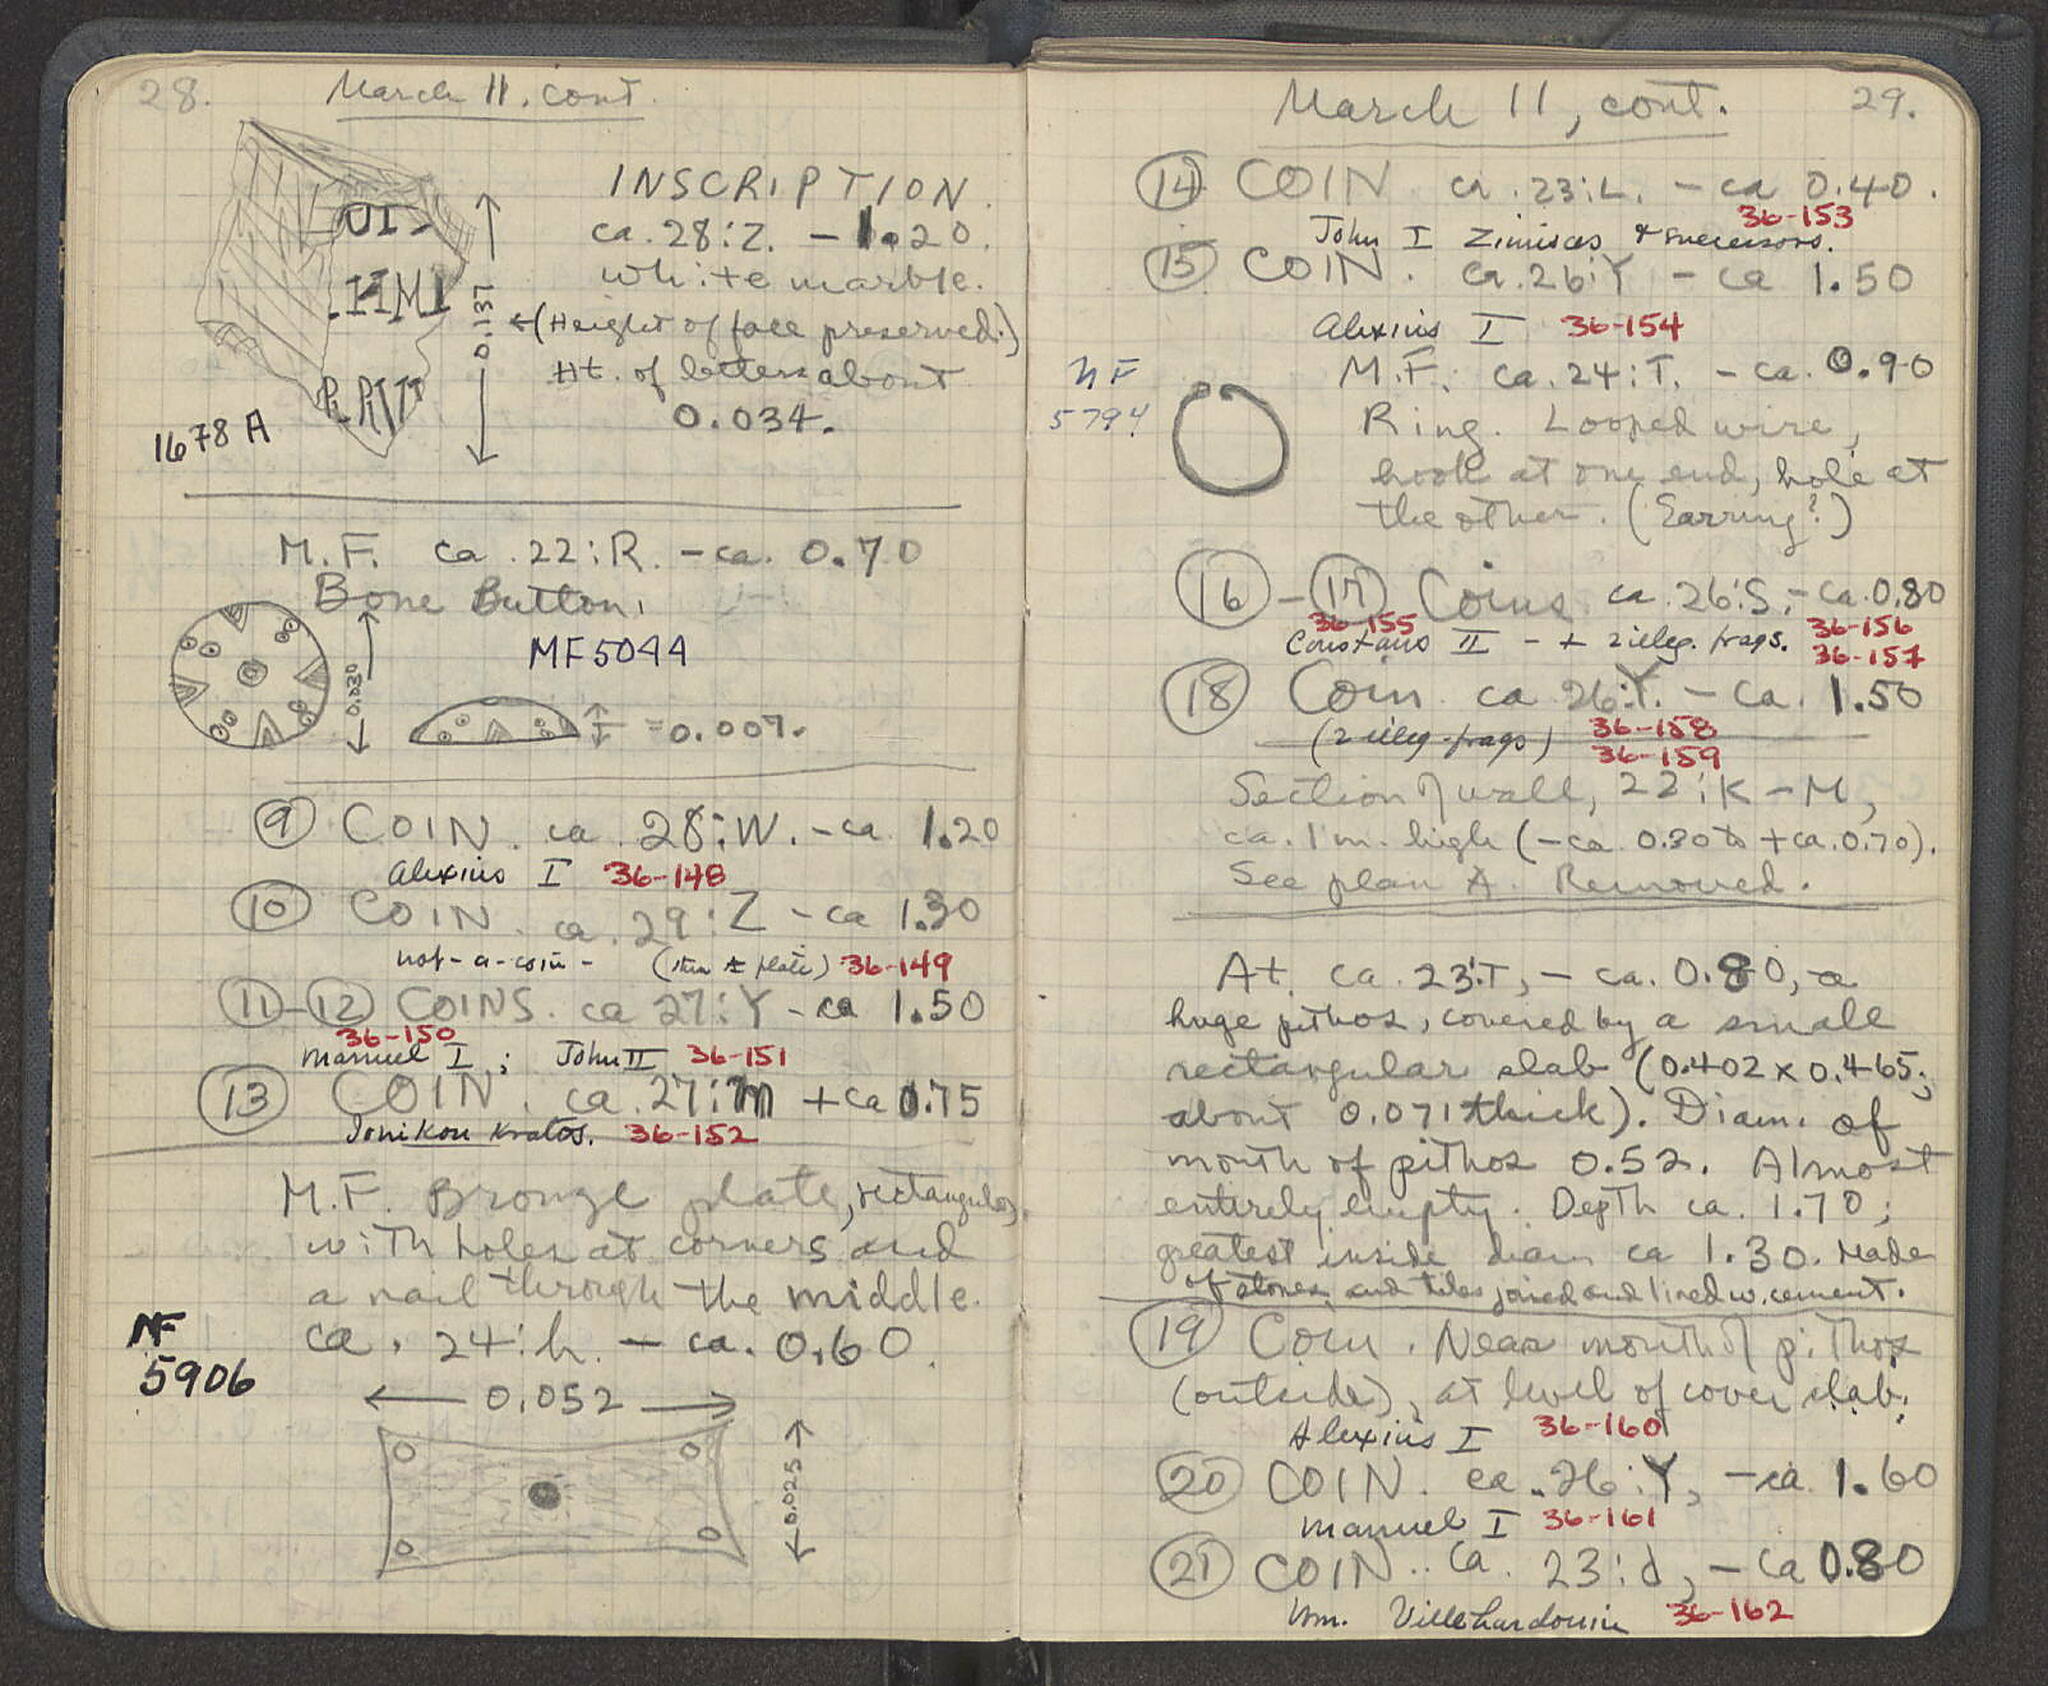 28.
March 11, cont.
INSCRIPTION.
ca. 28:Z. - 1.20.
white marble.
0.137
←(Height of face preserved.)
Ht. of letters about
0.034.
1678 A
M.F. ca. 22:R. - ca. 0.70
Bone Button.
MF5044
0.030
=0.007.
9 COIN. ca. 28:W. - ca. 1.20
Alexius I 36-148
10 COIN. ca. 29:Z - ca 1.30
not-a-coin - 36-149
11-12 COINS. ca 27:Y - ca 1.50
36-150
Manuel I; John II 36-151
13 COIN. ca. 27:m + ca 0.75
Ionikon Kratos. 36-152
M.F. Bronze plate, rectangular,
with holes at corners and
a nail through the middle.
ca. 24:h. - ca. 0.60.
MF
5906
0.052
0.025
March 11, cont. 29.
14 COIN ca. 23:L. - ca 0.40.
36-153
John I Zimisces & successors.
15 COIN. ca. 26:Y - ca 1.50
Alexius I 36-154
MF
5794
M.F. ca. 24:T. - ca. 0.90
Ring. Looped wire,
hook at one end, hole at
the other. (Earring?)
16-17 Coins ca. 26:S, - ca. 0.80
36-155 36-156
Constans II - + 2 illeg. frags. 36-157
18 Coin ca 26:Y. - ca. 1.50
(2 illeg. frags) 36-158
36-159
Section of wall, 22:K-M,
ca. 1 m. high (-ca. 0.30 to + ca. 0.70).
See plan A. Removed.
At ca. 23:T, - ca. 0.80, a
huge pithos, covered by a small
rectangular slab (0.402 x 0.465;
about 0.071 thick). Diam. of
mouth of pithos 0.52. Almost
entirely empty. Depth ca. 1.70;
greatest inside diam ca 1.30. Made
of stones and tiles joined and lined w. cement.
19 Coin. Near mouth of pithos
(outside), at level of cover slab.
Alexius I 36-160
20 COIN. ca. 26:Y, - ca. 1.60
Manuel I 36-161
21 COIN.. ca. 23:d, - ca 0.80
Wm. Villehardouin 36-162